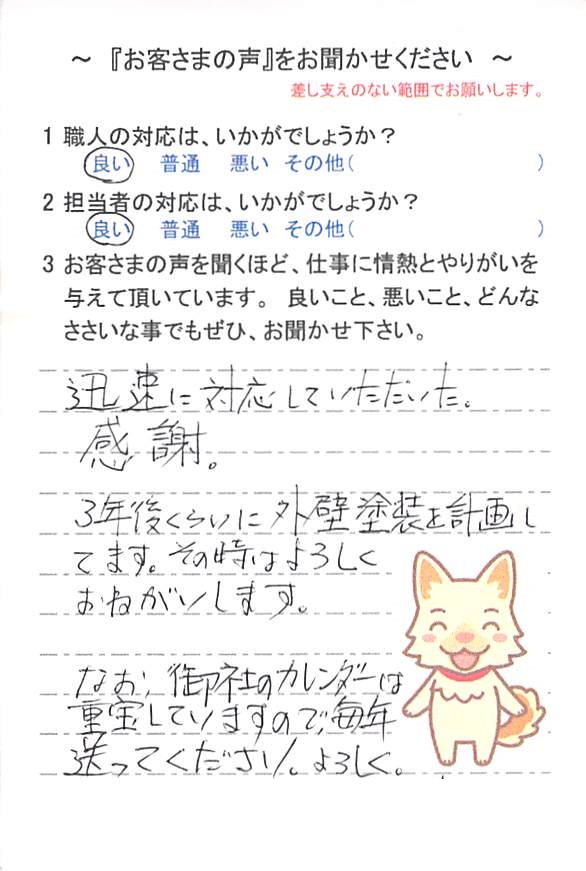 ～ 『お客さまの声』をお聞かせください ～
差し支えのない範囲でお願いします。
1 職人の対応は、いかがでしょうか？
良い 普通 悪い その他( )
2 担当者の対応は、いかがでしょうか？
良い 普通 悪い その他( )
3 お客さまの声を聞くほど、仕事に情熱とやりがいを
与えて頂いています。 良いこと、悪いこと、どんな
ささいな事でもぜひ、お聞かせ下さい。
迅速に対応していただいた。
感謝。
3年後くらいに外壁塗装を計画し
てます。その時はよろしく
おねがいします。
なお、御社のカレンダーは
重宝していますので、毎年
送ってください。よろしく。